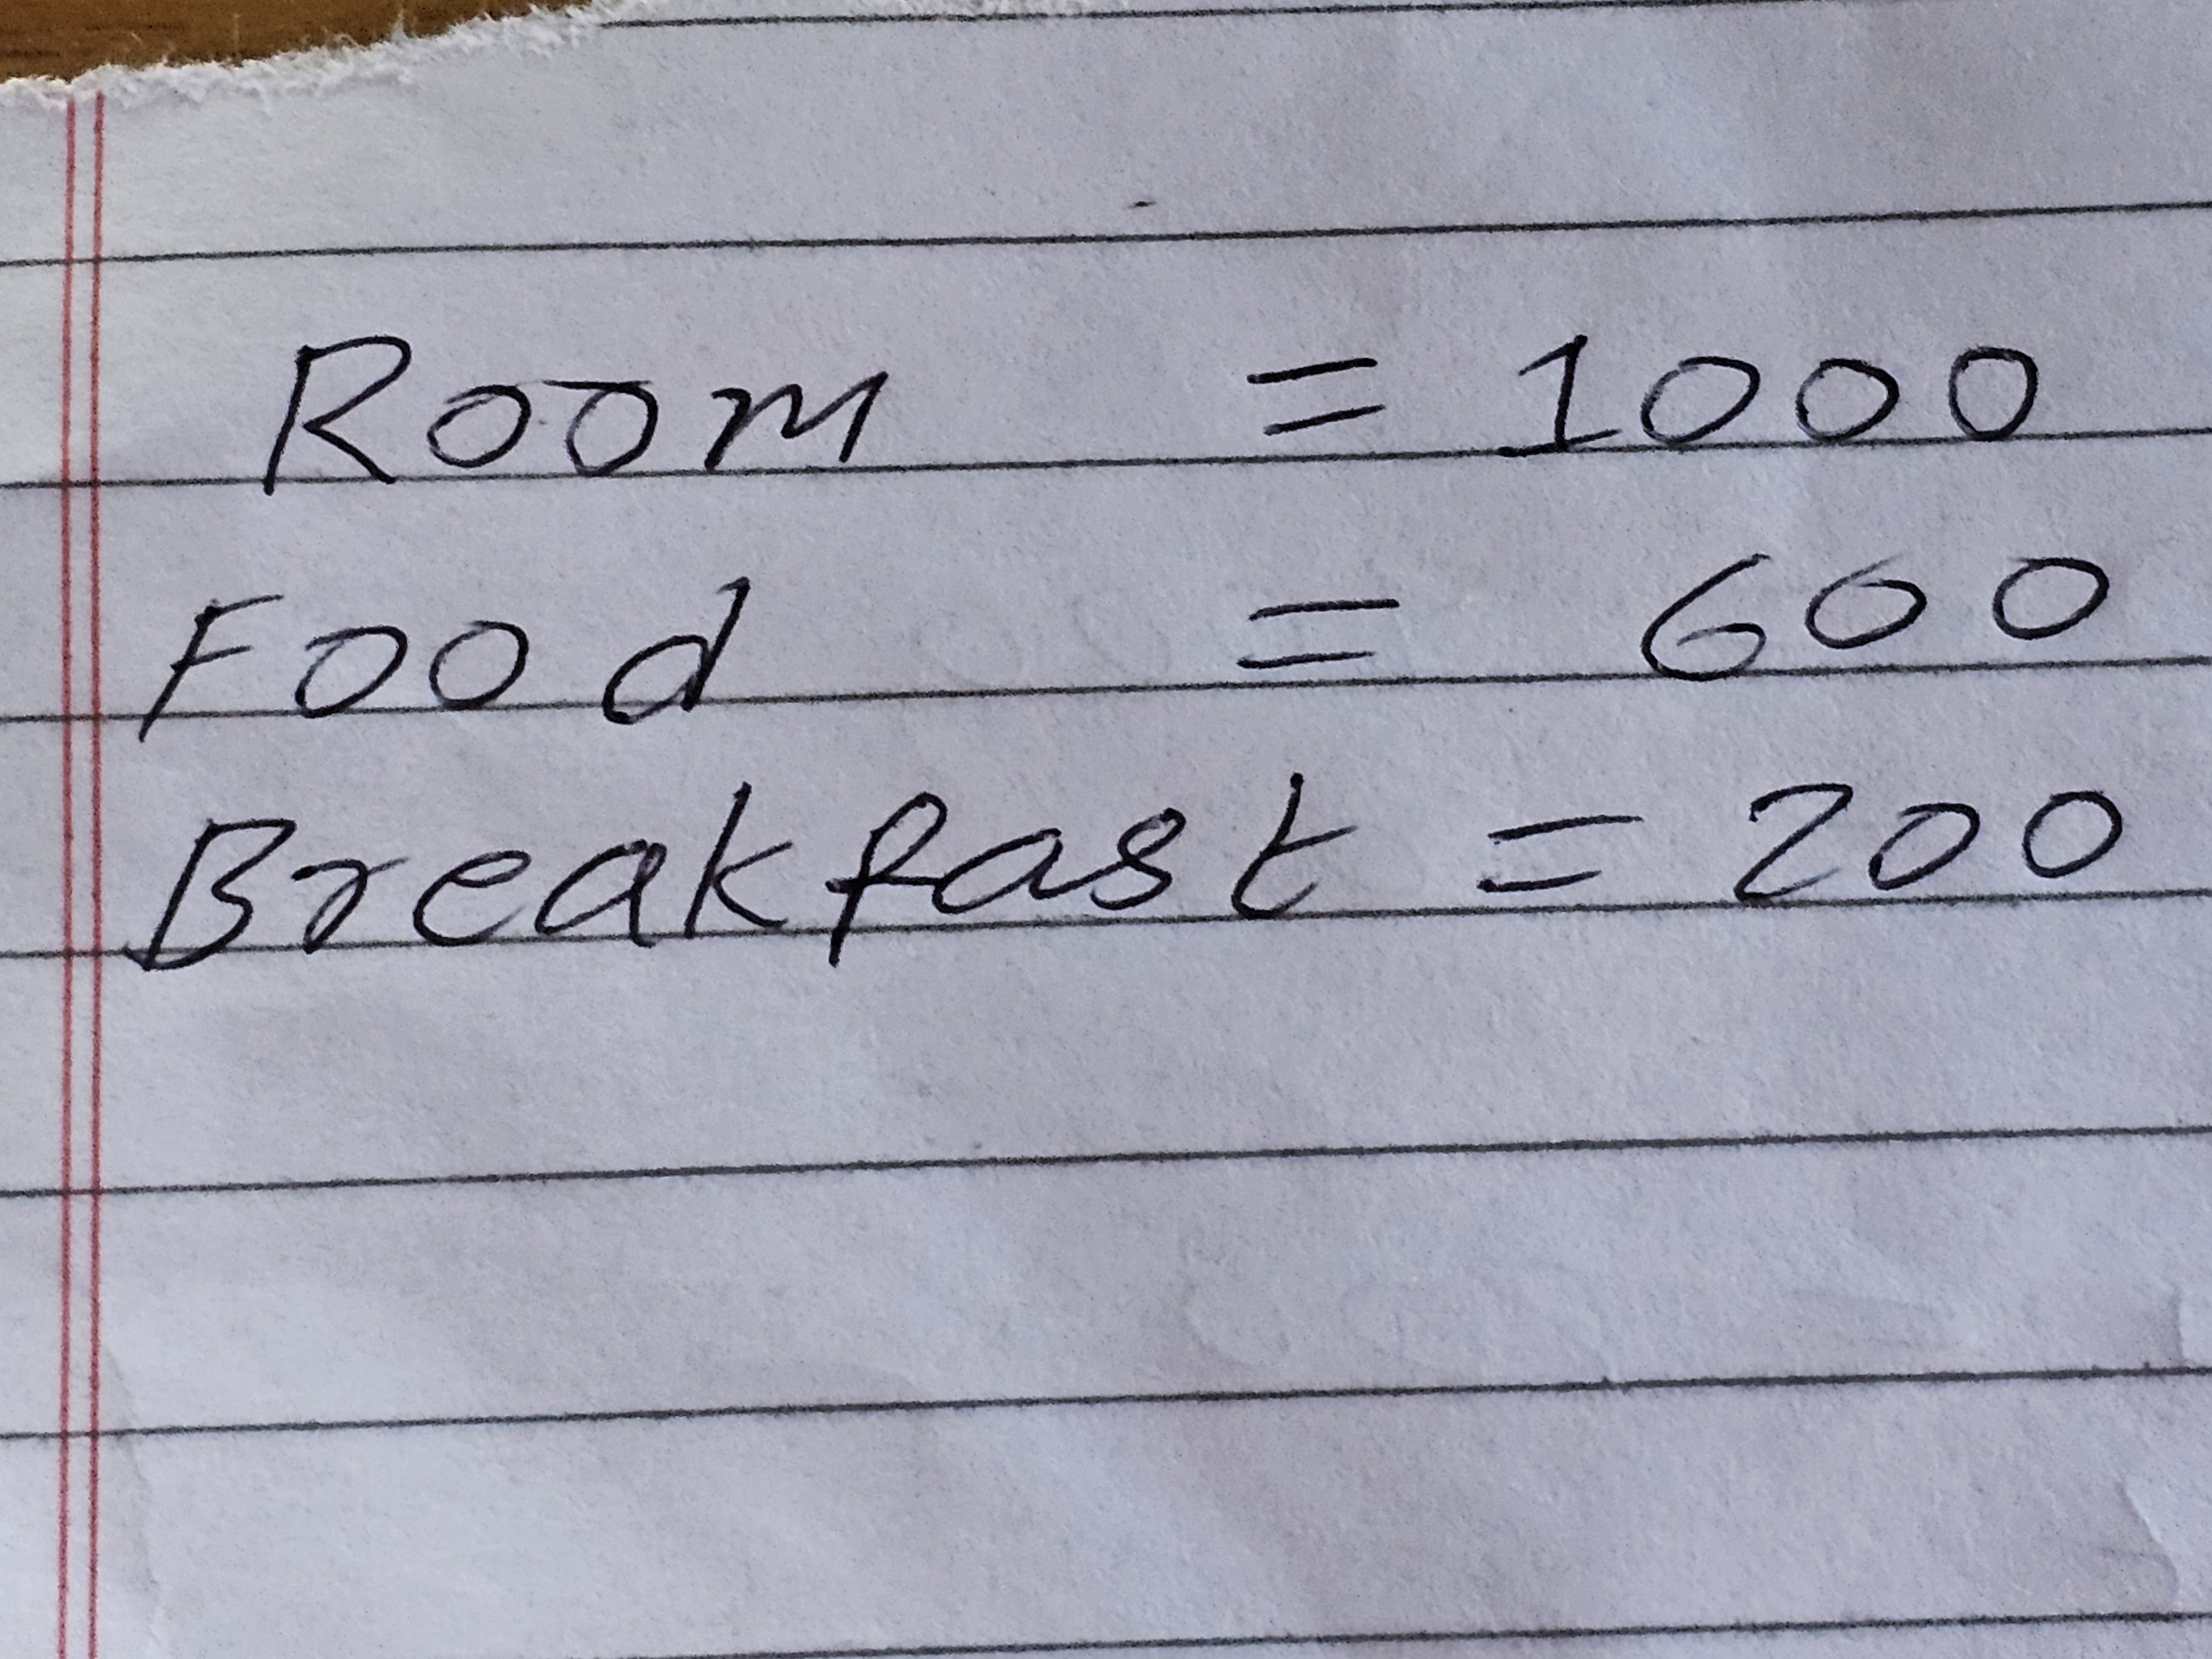 Room = 1000
Food = 600
Breakfast = 200